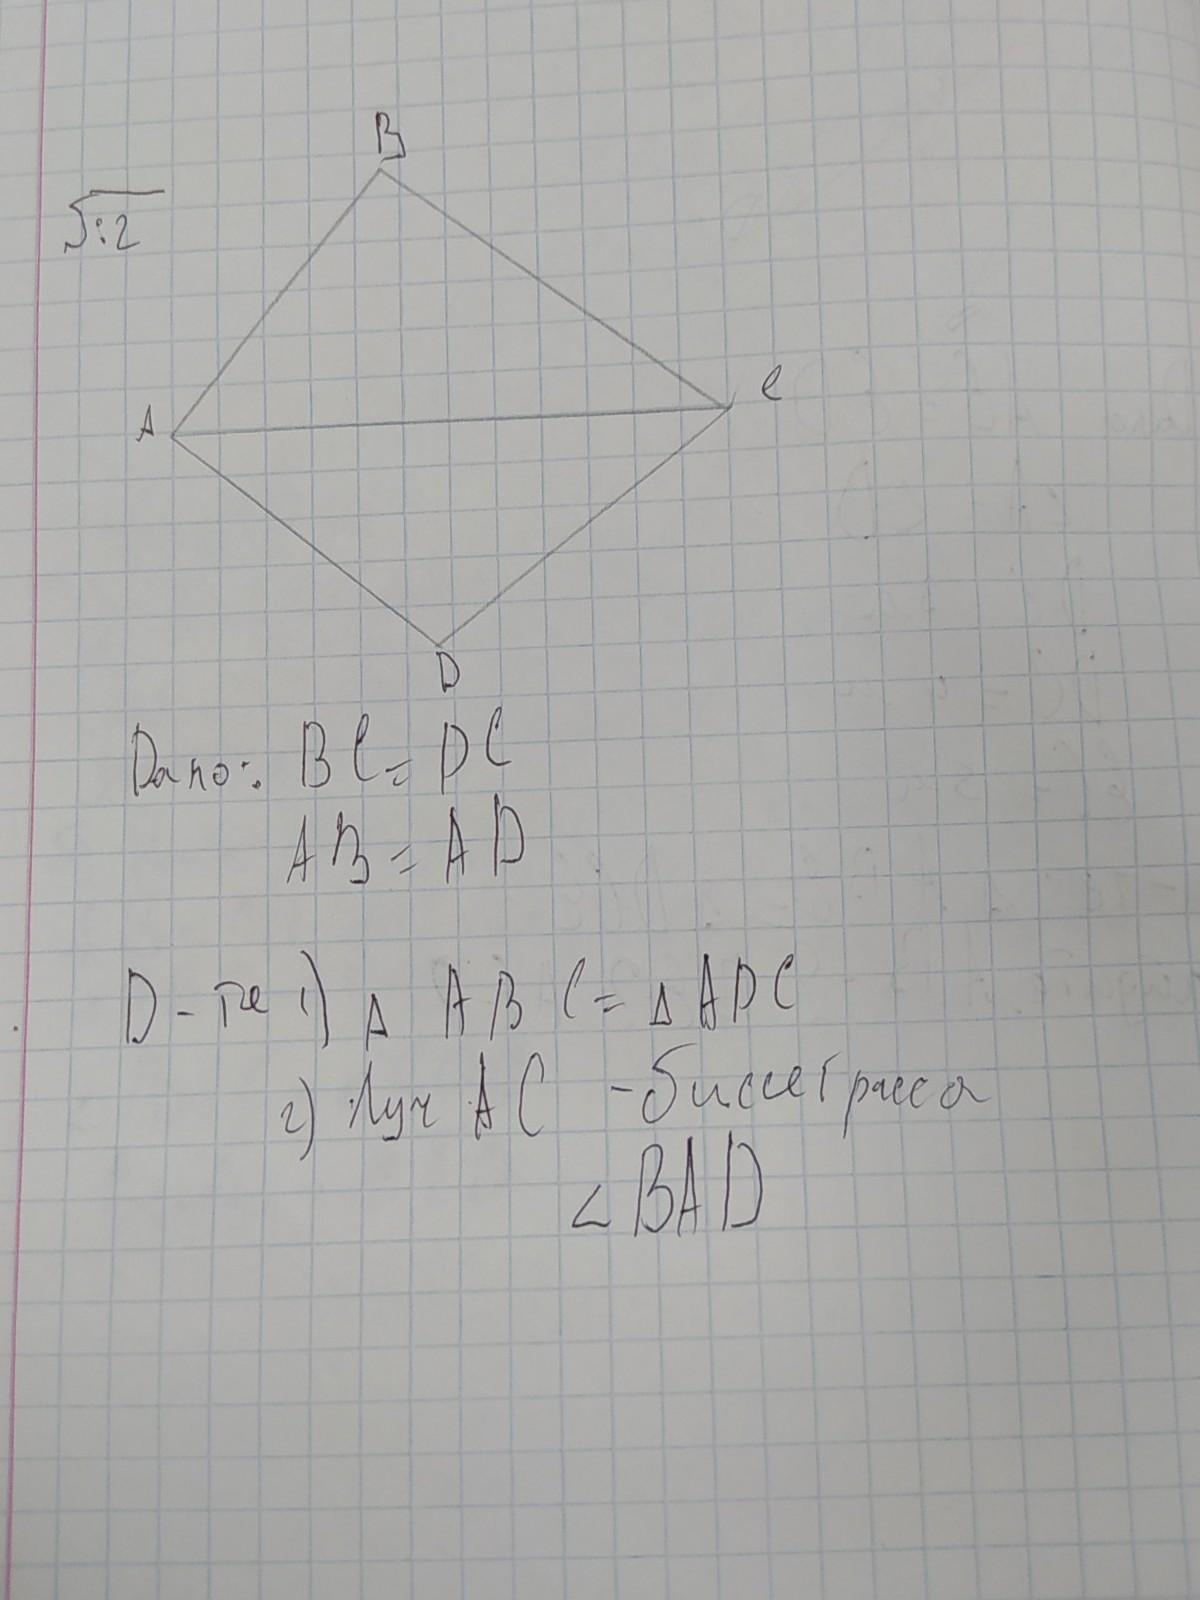 B
√:2
A
C
D
Дано: BC = DC
AB = AD
D-те 1) Δ ABC = Δ ADC
2) Луч AC - биссектрасса
∠ BAD